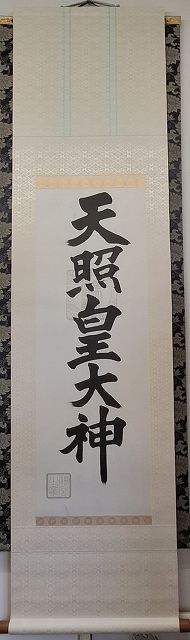 天照皇大神